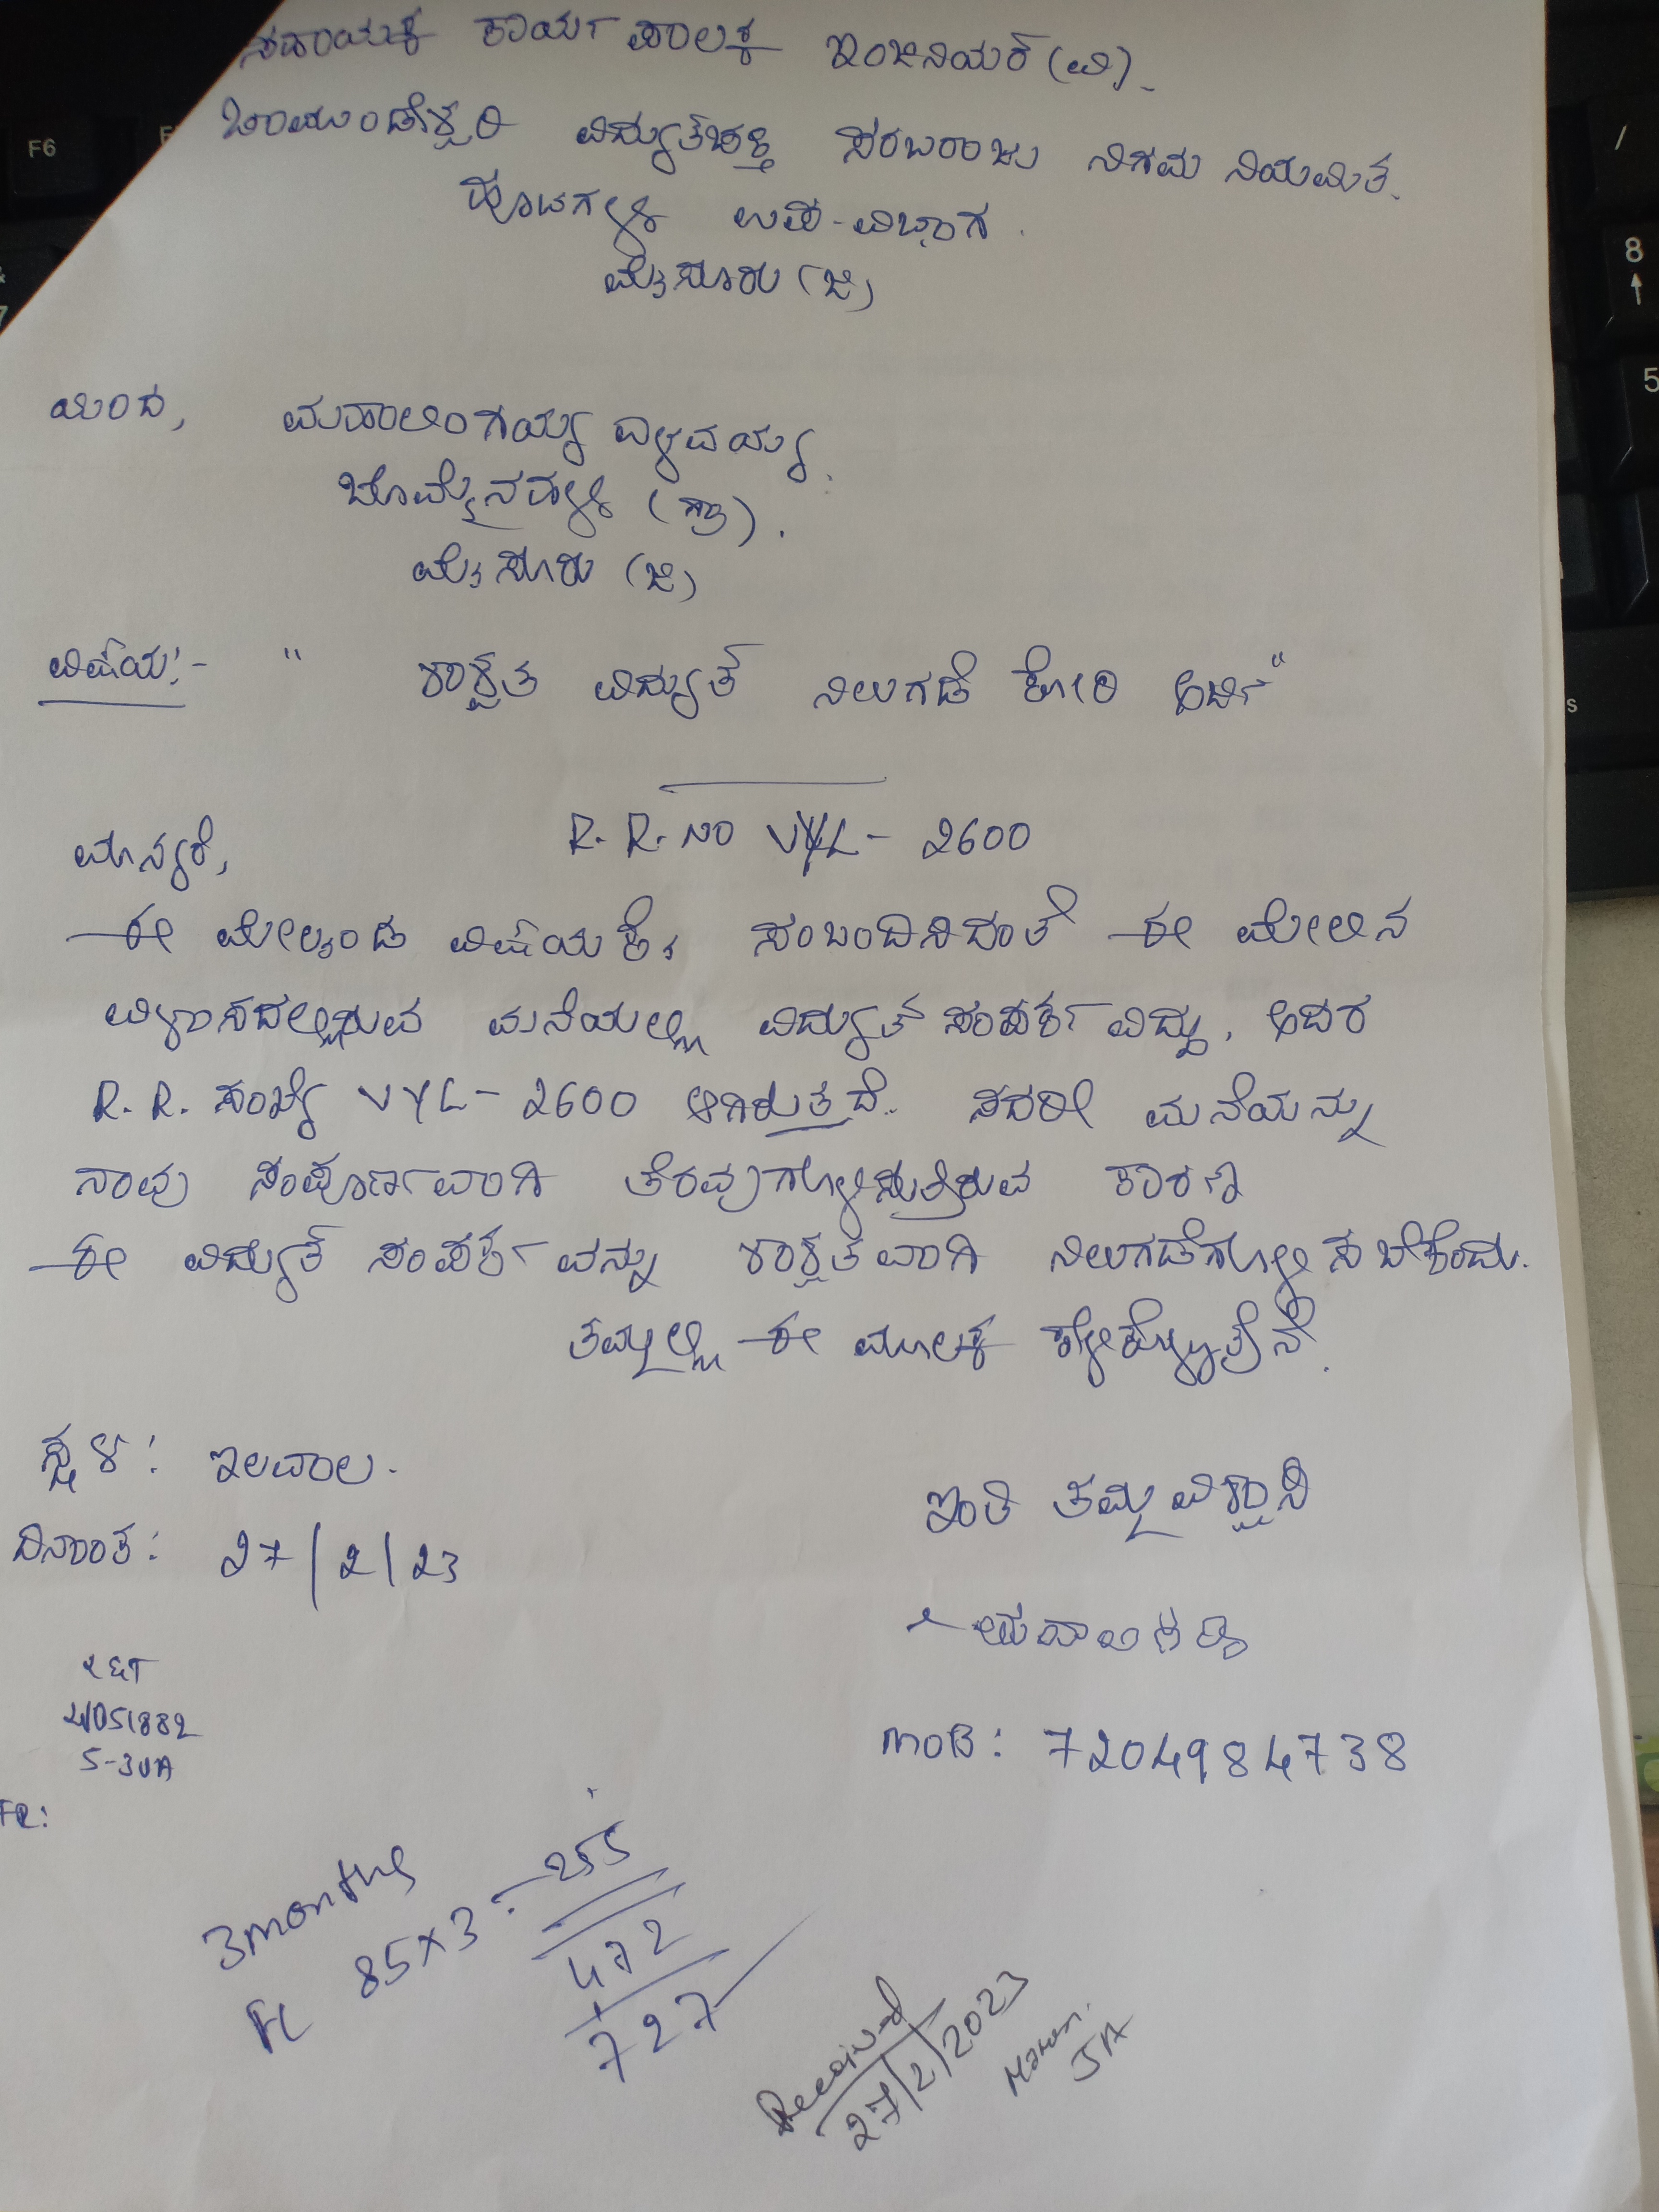 ಸಹಾಯಕ ಕಾರ್ಯಪಾಲಕ ಇಂಜಿನಿಯರ್ (ವಿ).
ಚಾಮುಂಡೇಶ್ವರಿ ವಿದ್ಯುತ್‌ಚಕ್ತಿ ಸರಬರಾಜು ನಿಗಮ ನಿಯಮಿತ.
ಹೂಟಗಳ್ಳಿ ಉಪ-ವಿಭಾಗ.
ಮೈಸೂರು (ಜಿ)
ಯಿಂದ, ಮಹಾಲಿಂಗಯ್ಯ
ಬೊಮ್ಮೇನಹಳ್ಳಿ (ಗ್ರಾ).
ಮೈಸೂರು (ಜಿ)
ವಿಷಯ:- " ಶಾಶ್ವತ ವಿದ್ಯುತ್ ನಿಲುಗಡೆ ಕೋರಿ ಅರ್ಜಿ"
R. R. ನಂ VYL- 2600
ಮಾನ್ಯರೆ,
ಈ ಮೇಲ್ಕಂಡ ವಿಷಯಕ್ಕೆ ಸಂಬಂದಿಸಿದಂತೆ ಈ ಮೇಲಿನ
ವಿಳಾಸದಲ್ಲಿರುವ ಮನೆಯಲ್ಲಿ ವಿದ್ಯುತ್ ಸಂಪರ್ಕವಿದ್ದು, ಅದರ
R. R. ಸಂಖ್ಯೆ VYL- 2600 ಆಗಿರುತ್ತದೆ. ಸದರೀ ಮನೆಯನ್ನು
ನಾವು ಸಂಪೂರ್ಣವಾಗಿ ತೆರವುಗೊಳ್ಳಿಸುತ್ತಿರುವ ಕಾರಣ
ಈ ವಿದ್ಯುತ್ ಸಂಪರ್ಕವನ್ನು ಶಾಶ್ವತವಾಗಿ ನಿಲುಗಡೆಗೊಳ್ಳಿಸಬೇಕೆಂದು.
ತಮ್ಮಲ್ಲಿ ಈ ಮೂಲಕ ಕೇಳಿಕೊಳ್ಳುತ್ತೇನೆ.
ಸ್ಥಳ: ಇಲವಾಲ.
ಇಂತಿ ತಮ್ಮ ವಿಶ್ವಾಸಿ
ದಿನಾಂಕ: 27/2/23
MOB: 7204984738
4051882
FR:
3months
FC 85x3 = 255
472
727
Received
27/2/2023
JA